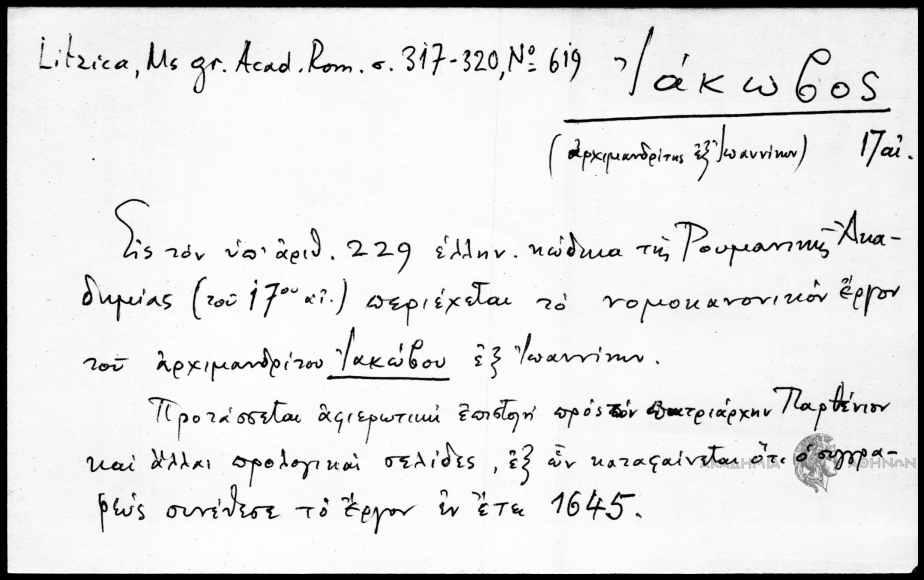 Litzica, Ms gr. Acad. Rom. σ. 317-320, Nº 619
Ἰάκωβος
(ἀρχιμανδρίτης ἐξ Ἰωαννίνων) 17 αἰ.
Εἰς τὸν ὑπ' ἀριθ. 229 ἑλλην. κώδικα τῆς Ρουμανικῆς Ἀκα-
δημίας (τοῦ 17ου αἰ.) περιέχεται τὸ νομοκανονικὸν ἔργον
τοῦ ἀρχιμανδρίτου Ἰακώβου ἐξ Ἰωαννίνων.
Προτάσσεται ἀφιερωτικὴ ἐπιστολὴ πρὸς τὸν πατριάρχην Παρθένιον
καὶ ἄλλαι προλογικαὶ σελίδες, ἐξ ὧν καταφαίνεται ὅτι ὁ συγγρα-
φεὺς συνέθεσε τὸ ἔργον ἐν ἔτει 1645.
ΑΚΑΔΗΜΙΑ ΑΘΗΝΩΝ